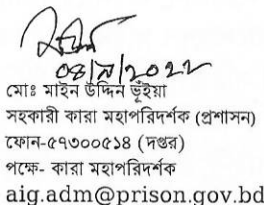 ০৪/৯/২০২২
মোঃ মাইন উদ্দিন ভূঁইয়া
সহকারী কারা মহাপরিদর্শক (প্রশাসন)
ফোন-৫৭৩০০৫১৪ (দপ্তর)
পক্ষে- কারা মহাপরিদর্শক
aig.adm@prison.gov.bd